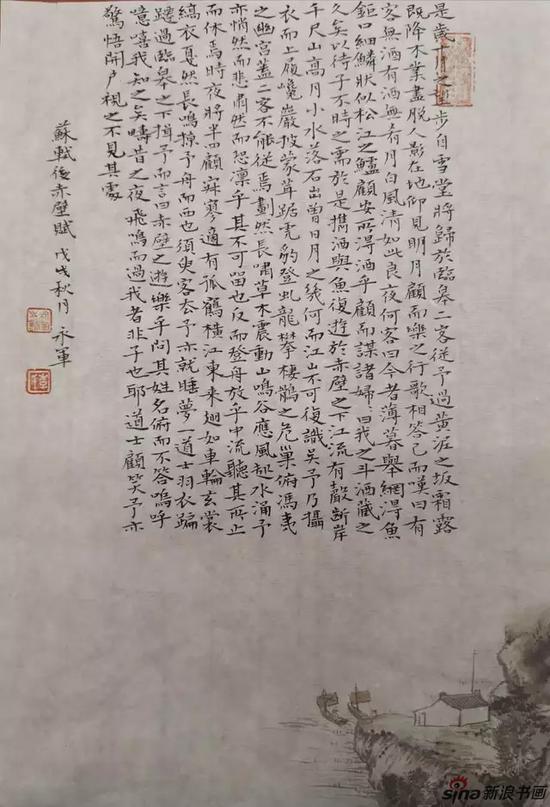 是歲十月之望步自雪堂將歸於臨皋二客從予過黃泥之坂霜露
既降木葉盡脫人影在地仰見明月顧而樂之行歌相答已而嘆曰有
客無酒有酒無肴月白風清如此良夜何客曰今者薄暮舉網得魚
鉅口細鱗狀似松江之鱸顧安所得酒乎顧而謀諸婦〻曰我之斗酒藏之
久矣以待子不時之需於是攜酒與魚復遊於赤壁之下江流有聲斷岸
千尺山高月小水落石出曾日月之幾何而江山不可復識矣予乃攝
衣而上履巉巖披蒙茸踞虎豹登虬龍攀棲鶻之危巢俯馮夷
之幽宮蓋二客不能從焉劃然長嘯草木震動山鳴谷應風起水涌予
亦悄然而悲肅然而恐凜乎其不可留也反而登舟放乎中流聽其所止
而休焉時夜將半四顧寂寥適有孤鶴橫江東來翅如車輪玄裳
縞衣戛然長鳴掠予舟而西也須臾客去予亦就睡夢一道士羽衣蹁
躚過臨皋之下揖予而言曰赤壁之遊樂乎問其姓名俯而不答嗚呼
噫嘻我知之矣疇昔之夜飛鳴而過我者非子也耶道士顧笑予亦
驚悟開戶視之不見其處
蘇軾後赤壁賦 戊戌秋月 永軍
sina新浪书画